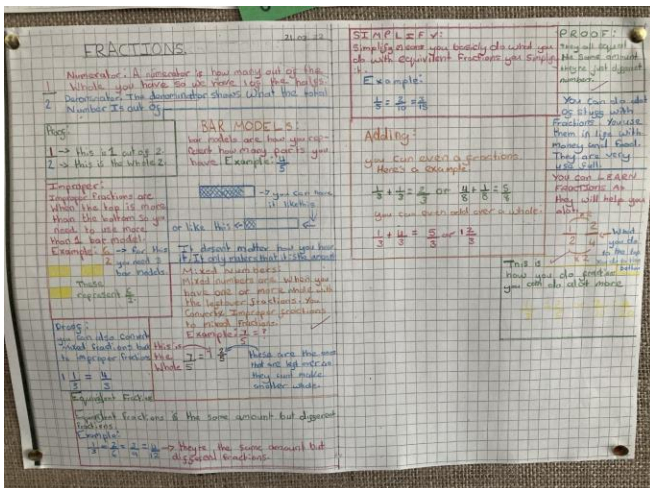 21.03.22
FRACTIONS.
Numerator: A numerator is how many out of the
1 Whole you have so we have 1 of the
2 Denominator: The denominator shows what the total
Number Is out of
Proof:
1 → this is 1 out of 2
2 → this is the whole 2.
BAR MODELS:
bar models are how you
how many parts you
have Example: 4/5
→ you can have
it like this
or like this
It doesnt matter how you have
it. It only matters that it's the
Improper:
Improper fractions are
When the top is more
than the bottom so you
need to use more
than 1 bar model.
Example: → for this
you need 2
bar models.
These
represent
Mixed Numbers:
Mixed numbers are when you
have one or more whole with
the leftover fractions. You
Converte Improper fractions
to mixed fractions.
Example: 7/5 = ?
this is
the
Whole
7/5 = 1 2/5
these are the ones
that are left over as
they cant make
another whole.
Proof:
you can also convert
mixed fractions back
to improper fractions
1 1/3 = 4/3
Equivalent Fraction
Equivalent fractions is the same amount but different
fractions.
Example:
→ theyre the same amount but
different fractions.
SIMPLIFY:
Simplify means you basicly do what you
do with equivilent fractions you simply
it.
Example:
Adding:
you can even a fractions
Here's a example:
1/3 + 1/3 = 2/3 or 4/8 + 1/8 = 5/8
you can even add over a whole.
1/3 + 4/3 = 5/3 or 1 2/3
PROOF:
They all equal
the same amount
theyre just different
numbers.
You can do alot
of stuff with
fractions. You use
them in life with
money and food.
They are very
use full!
YOU can LEARN
FRACTIONS As
they will help you
alot!
x2
1/2 2/4
x2
What
you do
to the top
you do to the
bottom
This is
how you do
you can do alot more